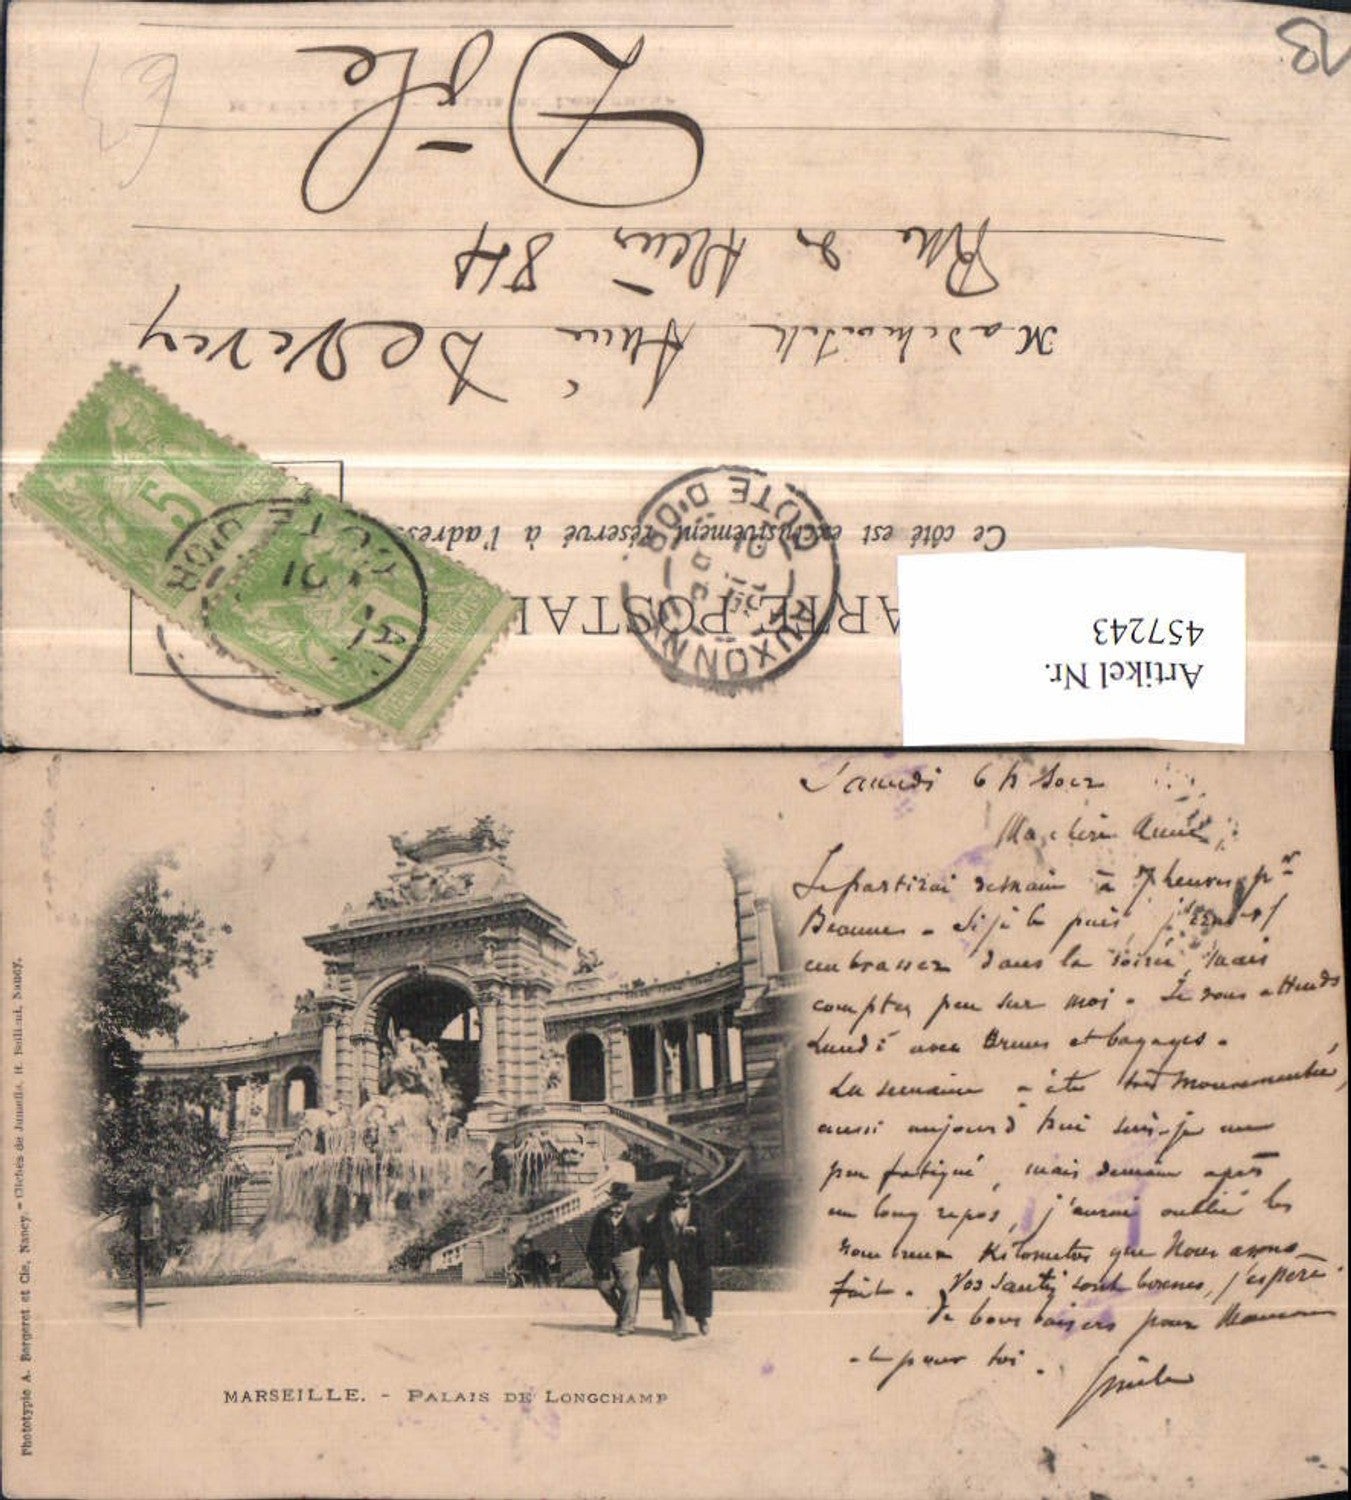 CARTE POSTALE
Ce côté est exclusivement réservé à l'adresse
Artikel Nr.
457243
AUXONNE
COTE D'OR
01
5
5
Mademoiselle
Rue 84
Dôle
13
Samedi 6 h soir
Ma chère Anna,
Je partirai demain à 7 heures pr
Beaune. Si je le puis, j'irai
embrasser dans la soirée, mais
comptez peu sur moi. Je vous attends
Lundi avec Bruns et bagages.
La semaine a été très mouvementée,
aussi aujourd'hui suis-je un
peu fatigué, mais demain après
un long repos, j'aurai oublié les
kilomètres que nous avons
fait. Vos santés sont bonnes, j'espère.
De bons baisers pour Maman
et pour toi.
MARSEILLE. - PALAIS DE LONGCHAMP
Phototypie A. Bergeret et Cie, Nancy. - Clichés de Jumelle H. Bellieni, Nancy.